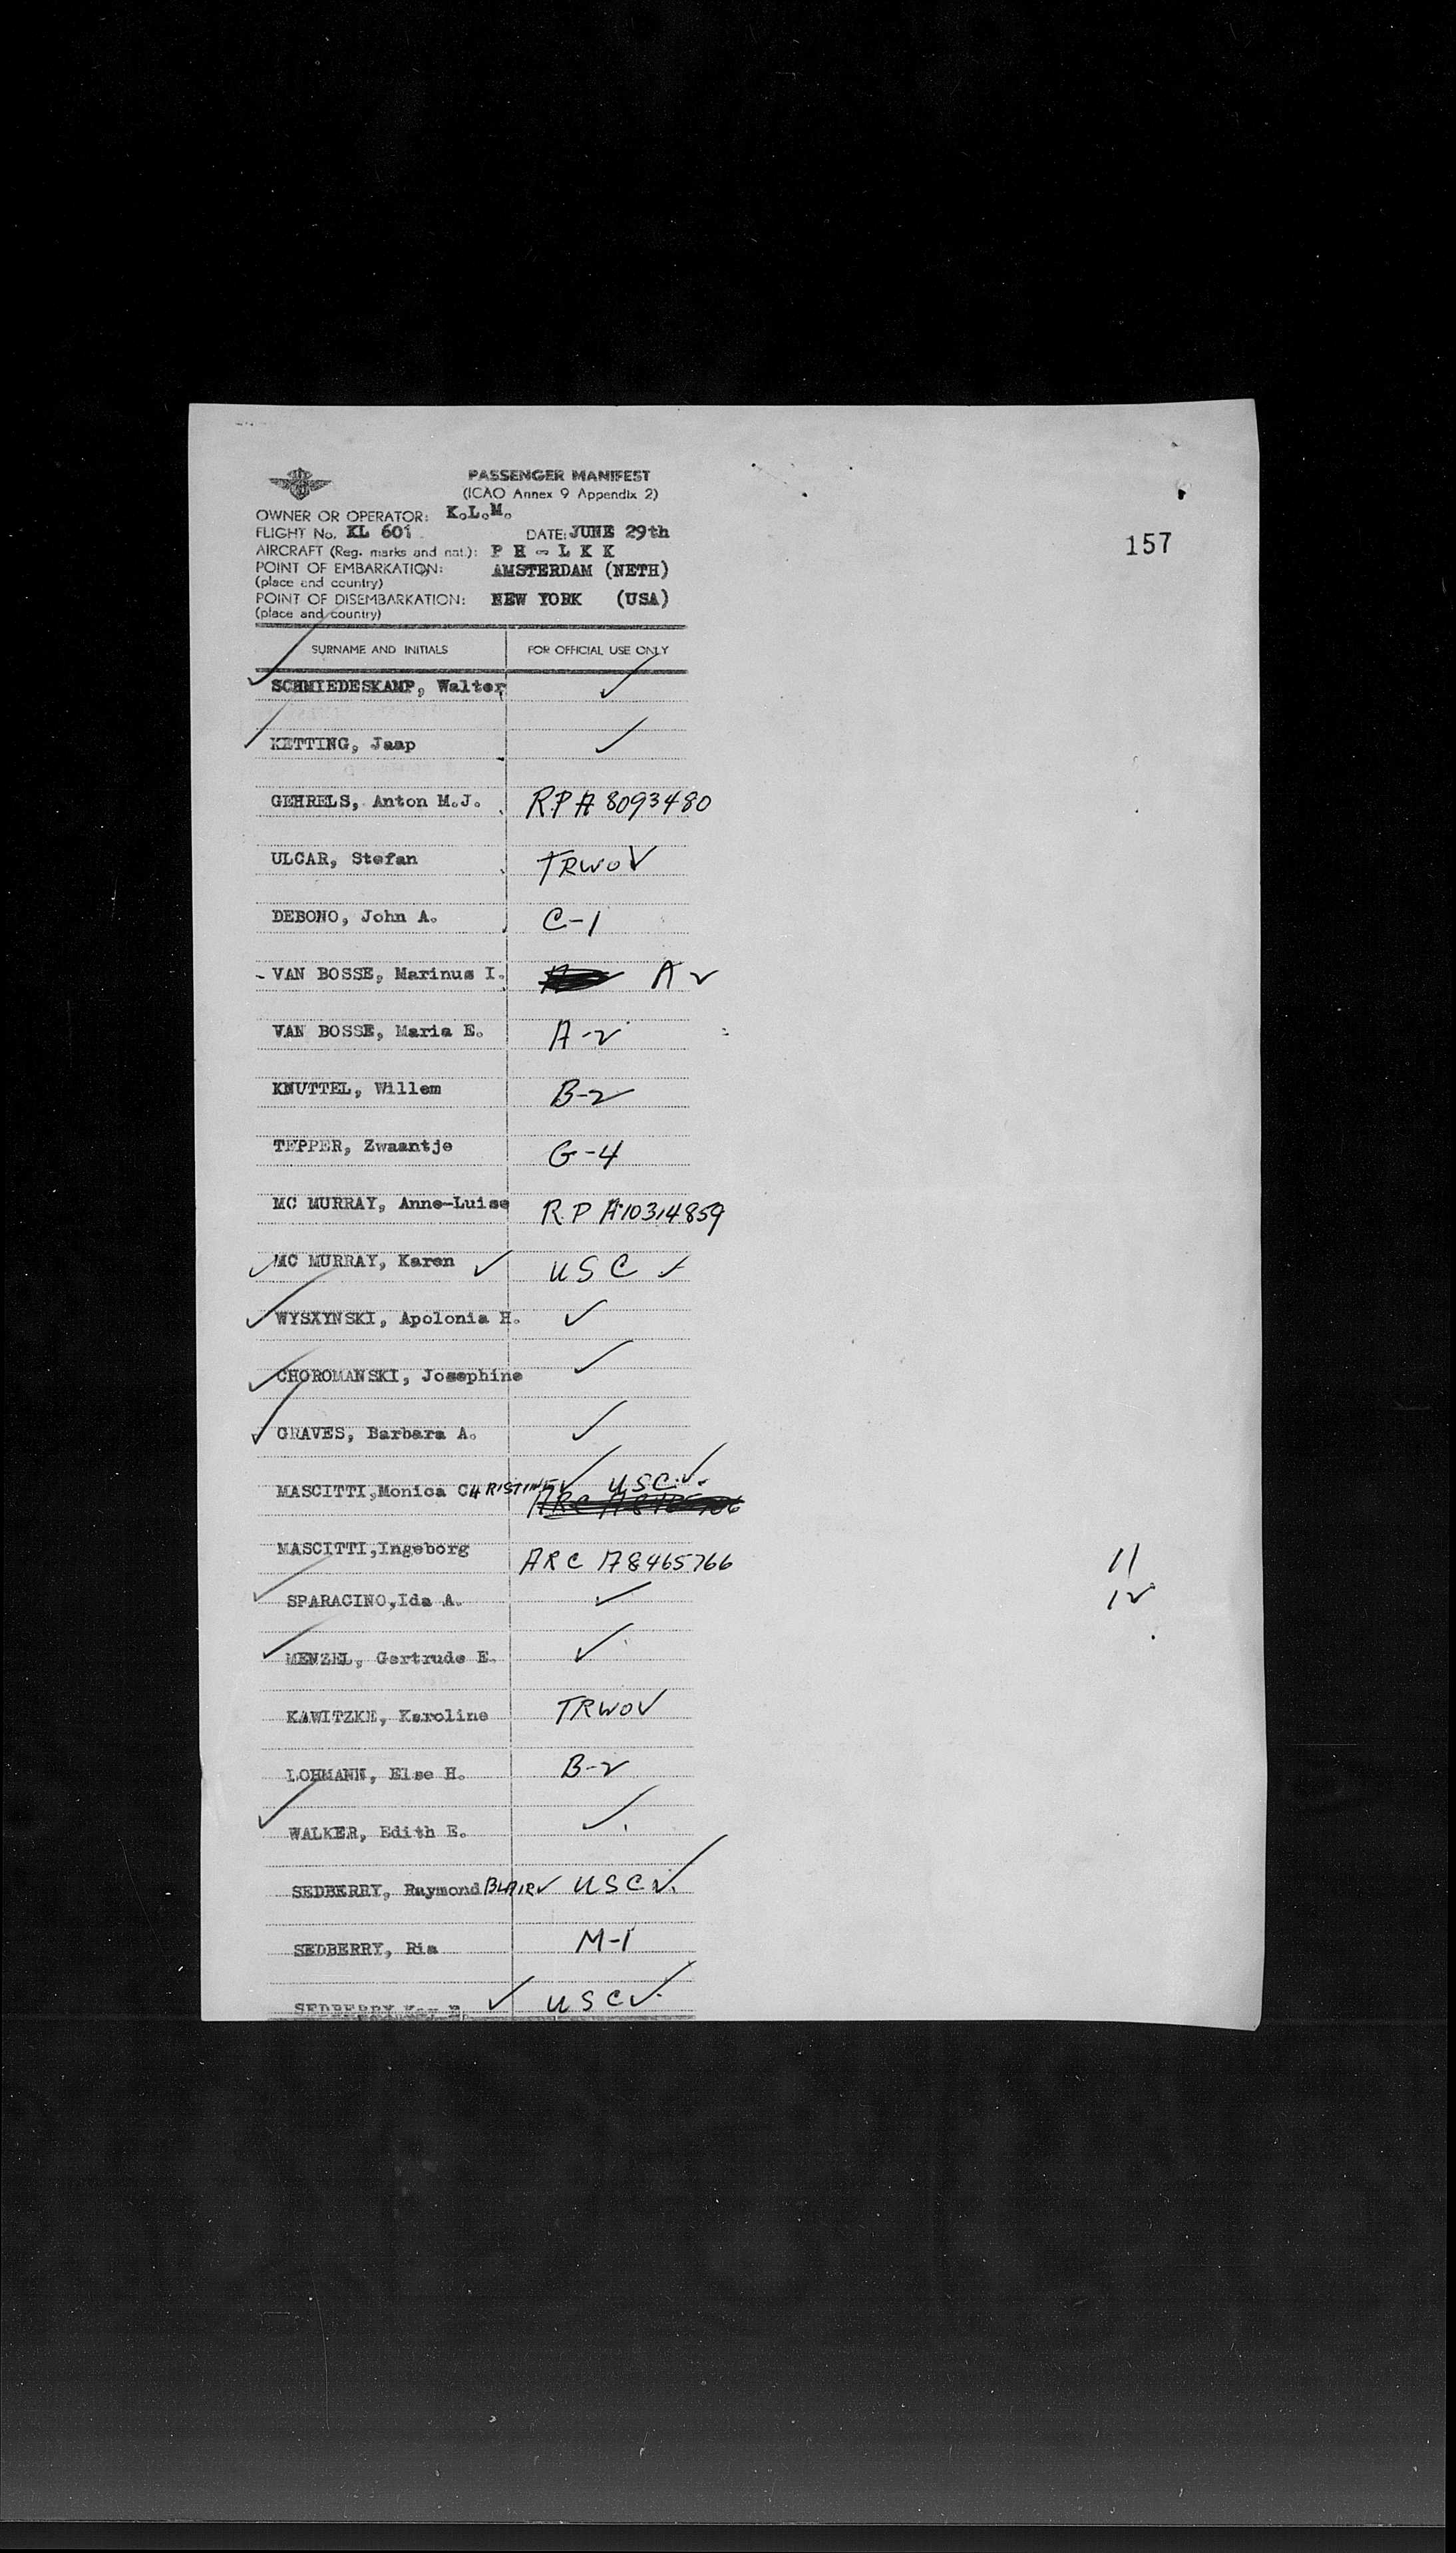 PASSENGER MANIFEST
(ICAO Annex 9 Appendix 2)
OWNER OR OPERATOR: K.L.M.
FLIGHT No. KL 601 DATE: JUNE 29th
157
AIRCRAFT (Reg. marks and nat.): P H - L K K
POINT OF EMBARKATION: AMSTERDAM (NETH)
(place and country)
POINT OF DISEMBARKATION: NEW YORK (USA)
(place and country)
SURNAME AND INITIALS FOR OFFICIAL USE ONLY
✓ SCHMIEDESKAMP, Walter ✓
/ KETTING, Jaap ✓
GEHRELS, Anton M.J. R.P A 8093480
ULCAR, Stefan TRWOV
DEBONO, John A. C-1
- VAN BOSSE, Marinus I. A 2
VAN BOSSE, Maria E. A-2
KNUTTEL, Willem B-2
TEPPER, Zwaantje G-4
MC MURRAY, Anne-Luise R.P A10314859
✓ MC MURRAY, Karen ✓ USC ✓
✓ WYSXYNSKI, Apolonia H. ✓
✓ CHOROMANSKI, Josephine ✓
✓ GRAVES, Barbara A. ✓
MASCITTI,Monica CHRISTINE ✓ USC ✓
MASCITTI,Ingeborg ARC A8465766 11
✓ SPARACINO,Ida A. ✓ 12
✓ MENZEL, Gertrude E. ✓
KAWITZKE, Karoline TRWOV
LOHMANN, Else H. B-2
✓ WALKER, Edith E. ✓
SEDBERRY, Raymond BLAIR ✓ USC ✓
SEDBERRY, Ria M-1
SEDBERRY ✓ USC ✓